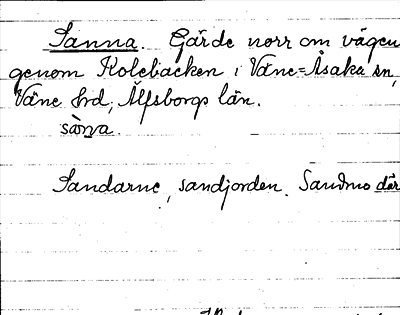 Sanna. Gärde norr om vägen
genom Kolebacken i Väne-Åsaka sn,
Väne hd, Älfsborgs län.
Sandarne, sandjorden. Sandmo där